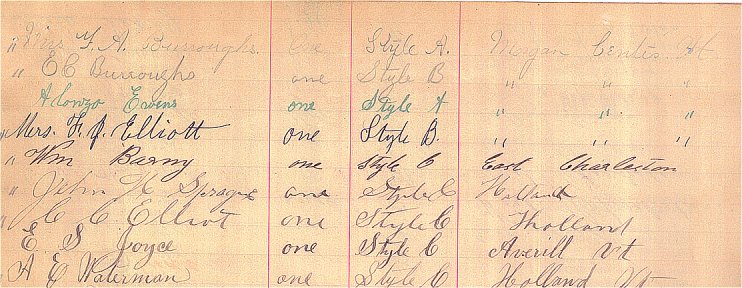 " Mrs. F. A. Burroughs. One Style A. Morgan Center Vt
" E C Burroughs one Style B " " "
Alonzo Evens one Style A " " "
" Mrs. F. J. Elliott one Style B. " " "
" Wm Barny one Style C East Charleston
" John H Sprague one Style C Holland
" C C Elliot one Style C Holland
" E S Joyce one Style C Averill Vt
" A E Waterman one Style C Holland Vt